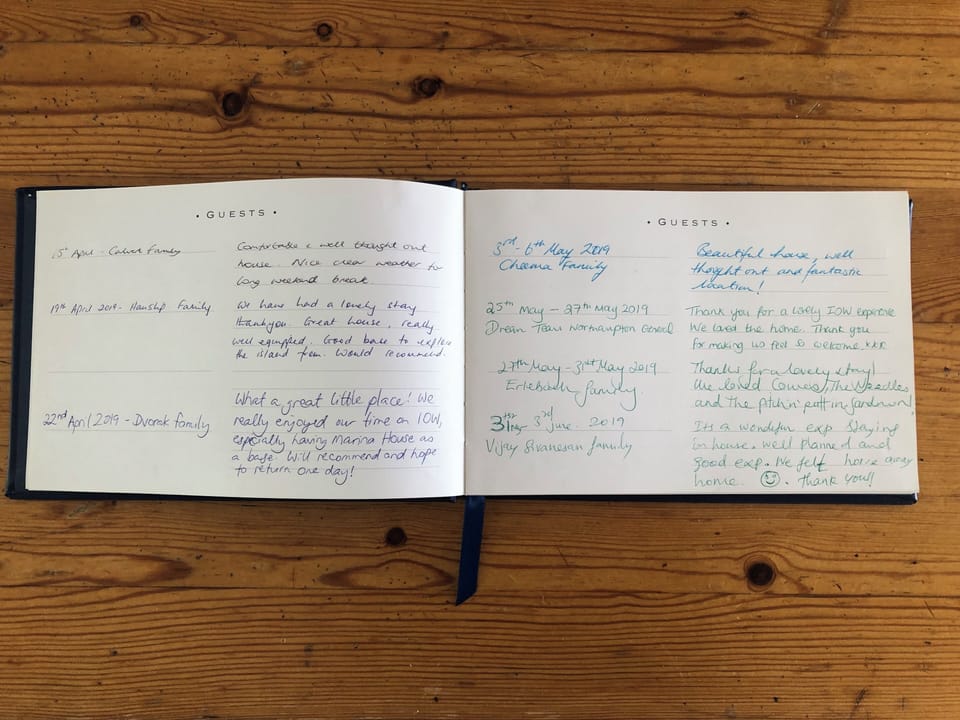 • GUESTS •
April - Calver Family
Comfortable & well thought out
house. Nice clear weather for
long weekend break.
19th April 2019 - Family
We have had a lovely stay
thankyou. Great house, really
well equipped. Good base to explore
the island from. Would recommend.
22nd April 2019 - Dvorak family
What a great little place! We
really enjoyed our time on IOW,
especially having Marina House as
a base. Will recommend and hope
to return one day!
• GUESTS •
3rd - 6th May 2019
Cheema Family
Beautiful house, well
thought out and fantastic
location!
25th May - 27th May 2019
Dream Team Northampton General
Thank you for a lovely IOW experience
We loved the home. Thank you
for making us feel so welcome xxx
27th May - 31st May 2019
family.
Thanks for a lovely stay!
We loved Cowes, The Needles
and the pitch n' putt in Sandown!
31st May 3rd June. 2019
Vijay Sivanesan family
Its a wonderful exp staying
in house. well planned and
good exp. We felt home away
home. ☺. Thank you!!